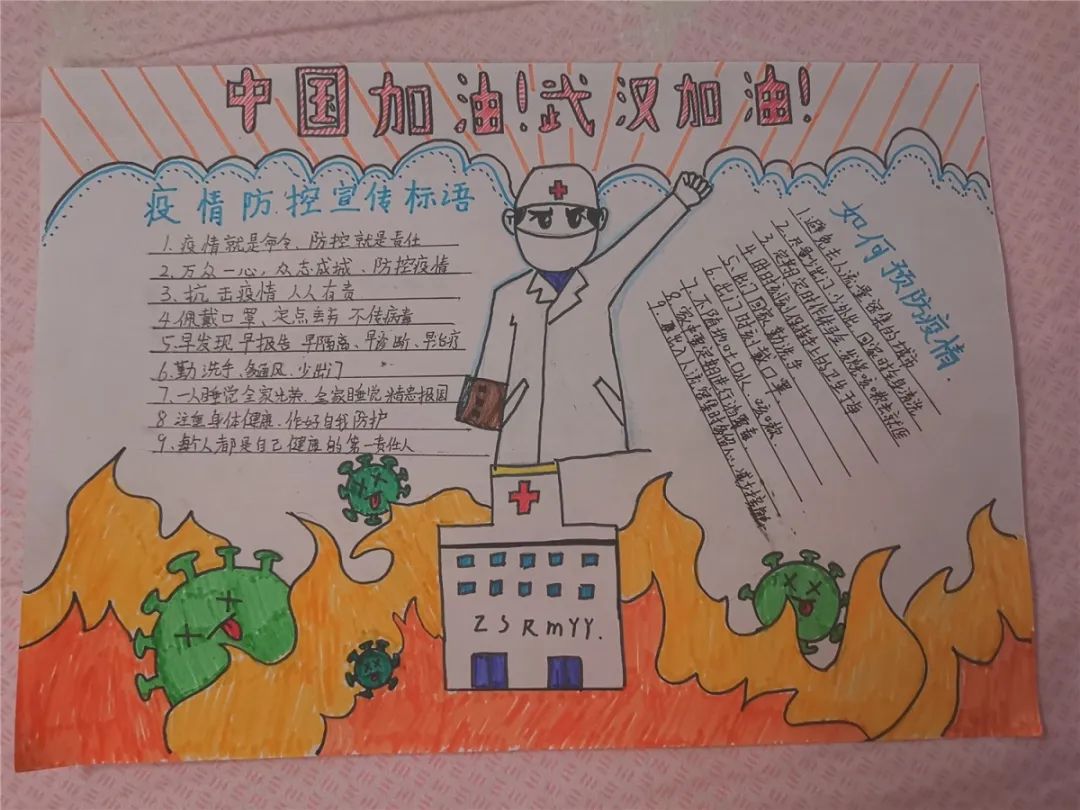 中国加油!武汉加油!
疫情防控宣传标语
1. 疫情就是命令、防控就是责任
2. 万众一心，众志成城、防控疫情
3. 抗击疫情 人人有责
4. 佩戴口罩、定点丢弃 不传病毒
5. 早发现 早报告 早隔离、早诊断、早治疗
6. 勤洗手、多通风、少出门
7. 一人睡觉 全家光荣、全家睡觉 精忠报国
8 注重身体健康、作好自我防护
9. 每个人都是自己健康的第一责任人
如何预防疫情
1. 避免去人流量密集的城市
2. 尽量少出门 少外出 回家时全身清洗
3. 定期定时作
4. 时时刻刻保持卫生干净
5. 出门回家 勤洗手
6. 出门时 戴口罩
7. 不随地吐口水、咳嗽
8. 家中要定期进行消毒
9.
ZSRmYY.